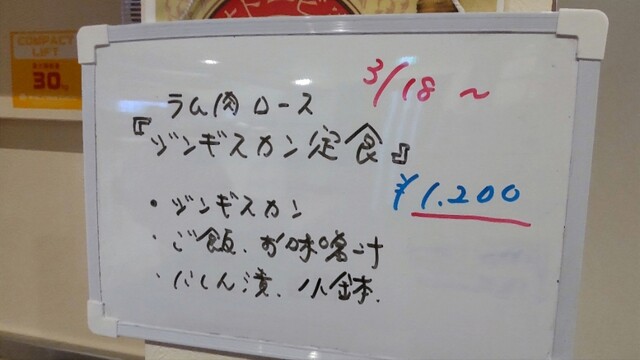 COMPACT
LIFT
30
3/18 ~
ラム肉ロース
『ジンギスカン定食』
¥1.200
・ジンギスカン
・ご飯、お味噌汁
・にしん漬、小鉢